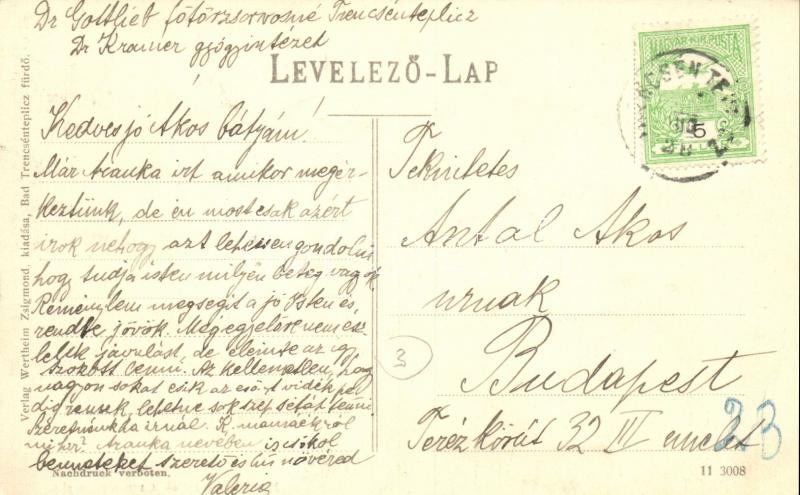 Dr Gottlieb főtörzsorvosné Trencsénteplicz
Dr Kramer gyógyintézet
LEVELEZŐ-LAP
MAGYAR KIR. POSTA
TRENCSÉN-TEPLICZ
Kedves jó Akos bátyám!
Már Aranka irt amikor megér-
keztünk, de én most csak azért
irok nehogy azt lehessen gondolni
hogy tudja isten miljen beteg vagyok.
Reménylem megsegit a jó Isten és,
rendbe jövök. Még egyelore nem ész-
leltem javulást, de eleinte az igy
szokott lenni. Az kellemetlen, hogy
nagyon sokat esik az eső it vidék pe-
dig remek, lehetne sok szép sétát tenni.
Szeretnénk ha irnál. K. mamáékról
mi hir? Aranka nevében is csókol
benneteket szerető és hü növéred
Valeria
Tekintetes
Antal Akos
urnak
Budapest
Teréz körút 32 III emelet
3
23
Verlag Wertheim Zsigmond, kiadása, Bad Trencsénteplicz fürdő.
Nachdruck verboten.
11 3008